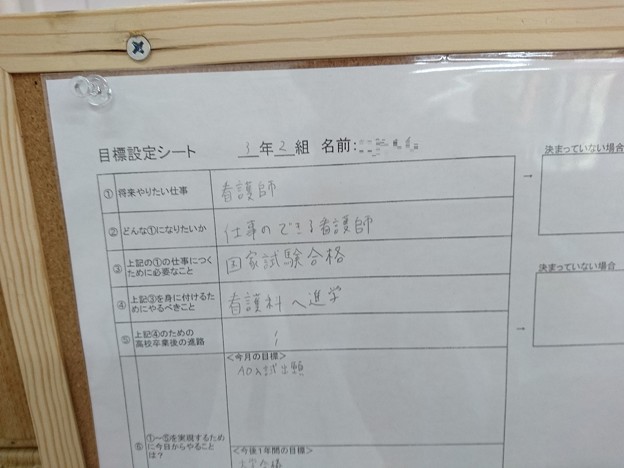 目標設定シート 3年2組 名前:
決まっていない場合
① 将来やりたい仕事 看護師 →
② どんな①になりたいか 仕事のできる看護師
③ 上記の①の仕事につく
ために必要なこと 国家試験合格
決まっていない場合
④ 上記③を身に付けるた
めにやるべきこと 看護科へ進学
⑤ 上記④のための
高校卒業後の進路 →
<今月の目標>
AO入試出願
①~⑤を実現するため
⑥ に今日からやること
は?
<今後1年間の目標>